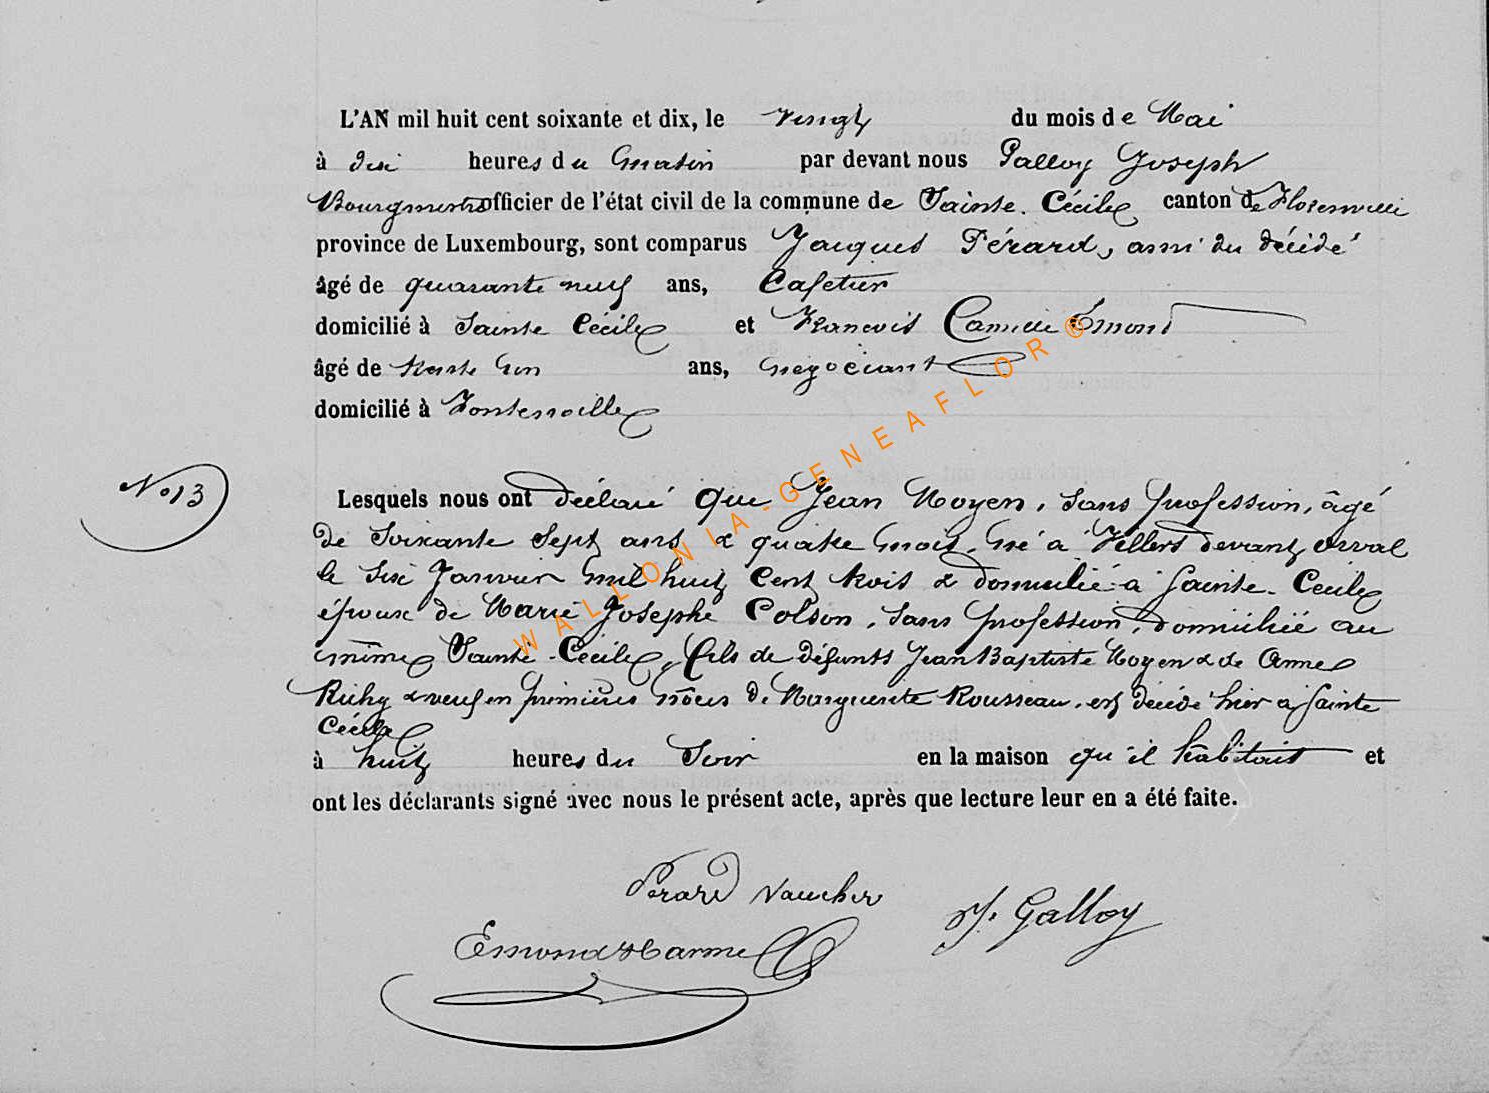 L'AN mil huit cent soixante et dix, le vingt du mois de Mai
à dix heures du matin par devant nous Galloy Joseph
Bourgmestre officier de l'état civil de la commune de Sainte-Cécile canton de Florenville
province de Luxembourg, sont comparus Jacques Pérard, ami du décédé
âgé de quarante neuf ans, Cafetier
domicilié à Sainte Cécile et François Camille Emond
âgé de trente un ans, négociant
domicilié à Fontenoille
No 13
Lesquels nous ont déclaré que Jean Noyen, sans profession, âgé
de soixante sept ans & quatre mois, né à Villers devant Orval
le six Janvier mil huit cent trois & domicilié à Sainte-Cécile
époux de Marie Josephe Colson, sans profession, domiciliée au
même Sainte-Cécile, fils de défunts Jean Baptiste Noyen & de Anne
Richy & veuf en premières nôces de Marguerite Rousseau, est décédé hier à Sainte
Cécile
à huit heures du soir en la maison qu'il habitait et
ont les déclarants signé avec nous le présent acte, après que lecture leur en a été faite.
Pérard Vaucher
J. Galloy
Emond Harmel
WALLONIA-GENEAFLOR®